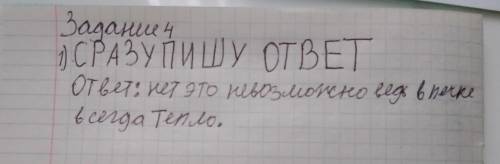 Задание 4
1) СРАЗУ ПИШУ ОТВЕТ
Ответ: нет это невозможно ведь в печке
всегда тепло.